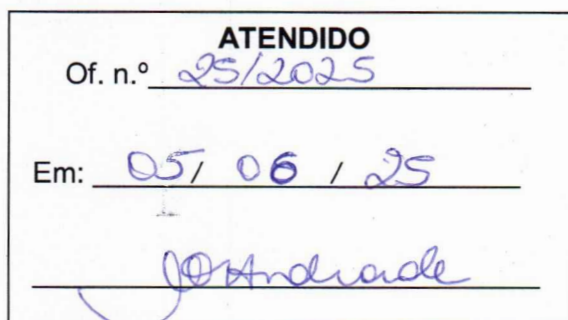 ATENDIDO
Of. n.º 25/2025
Em: 05/ 06 / 25
JOAndrade